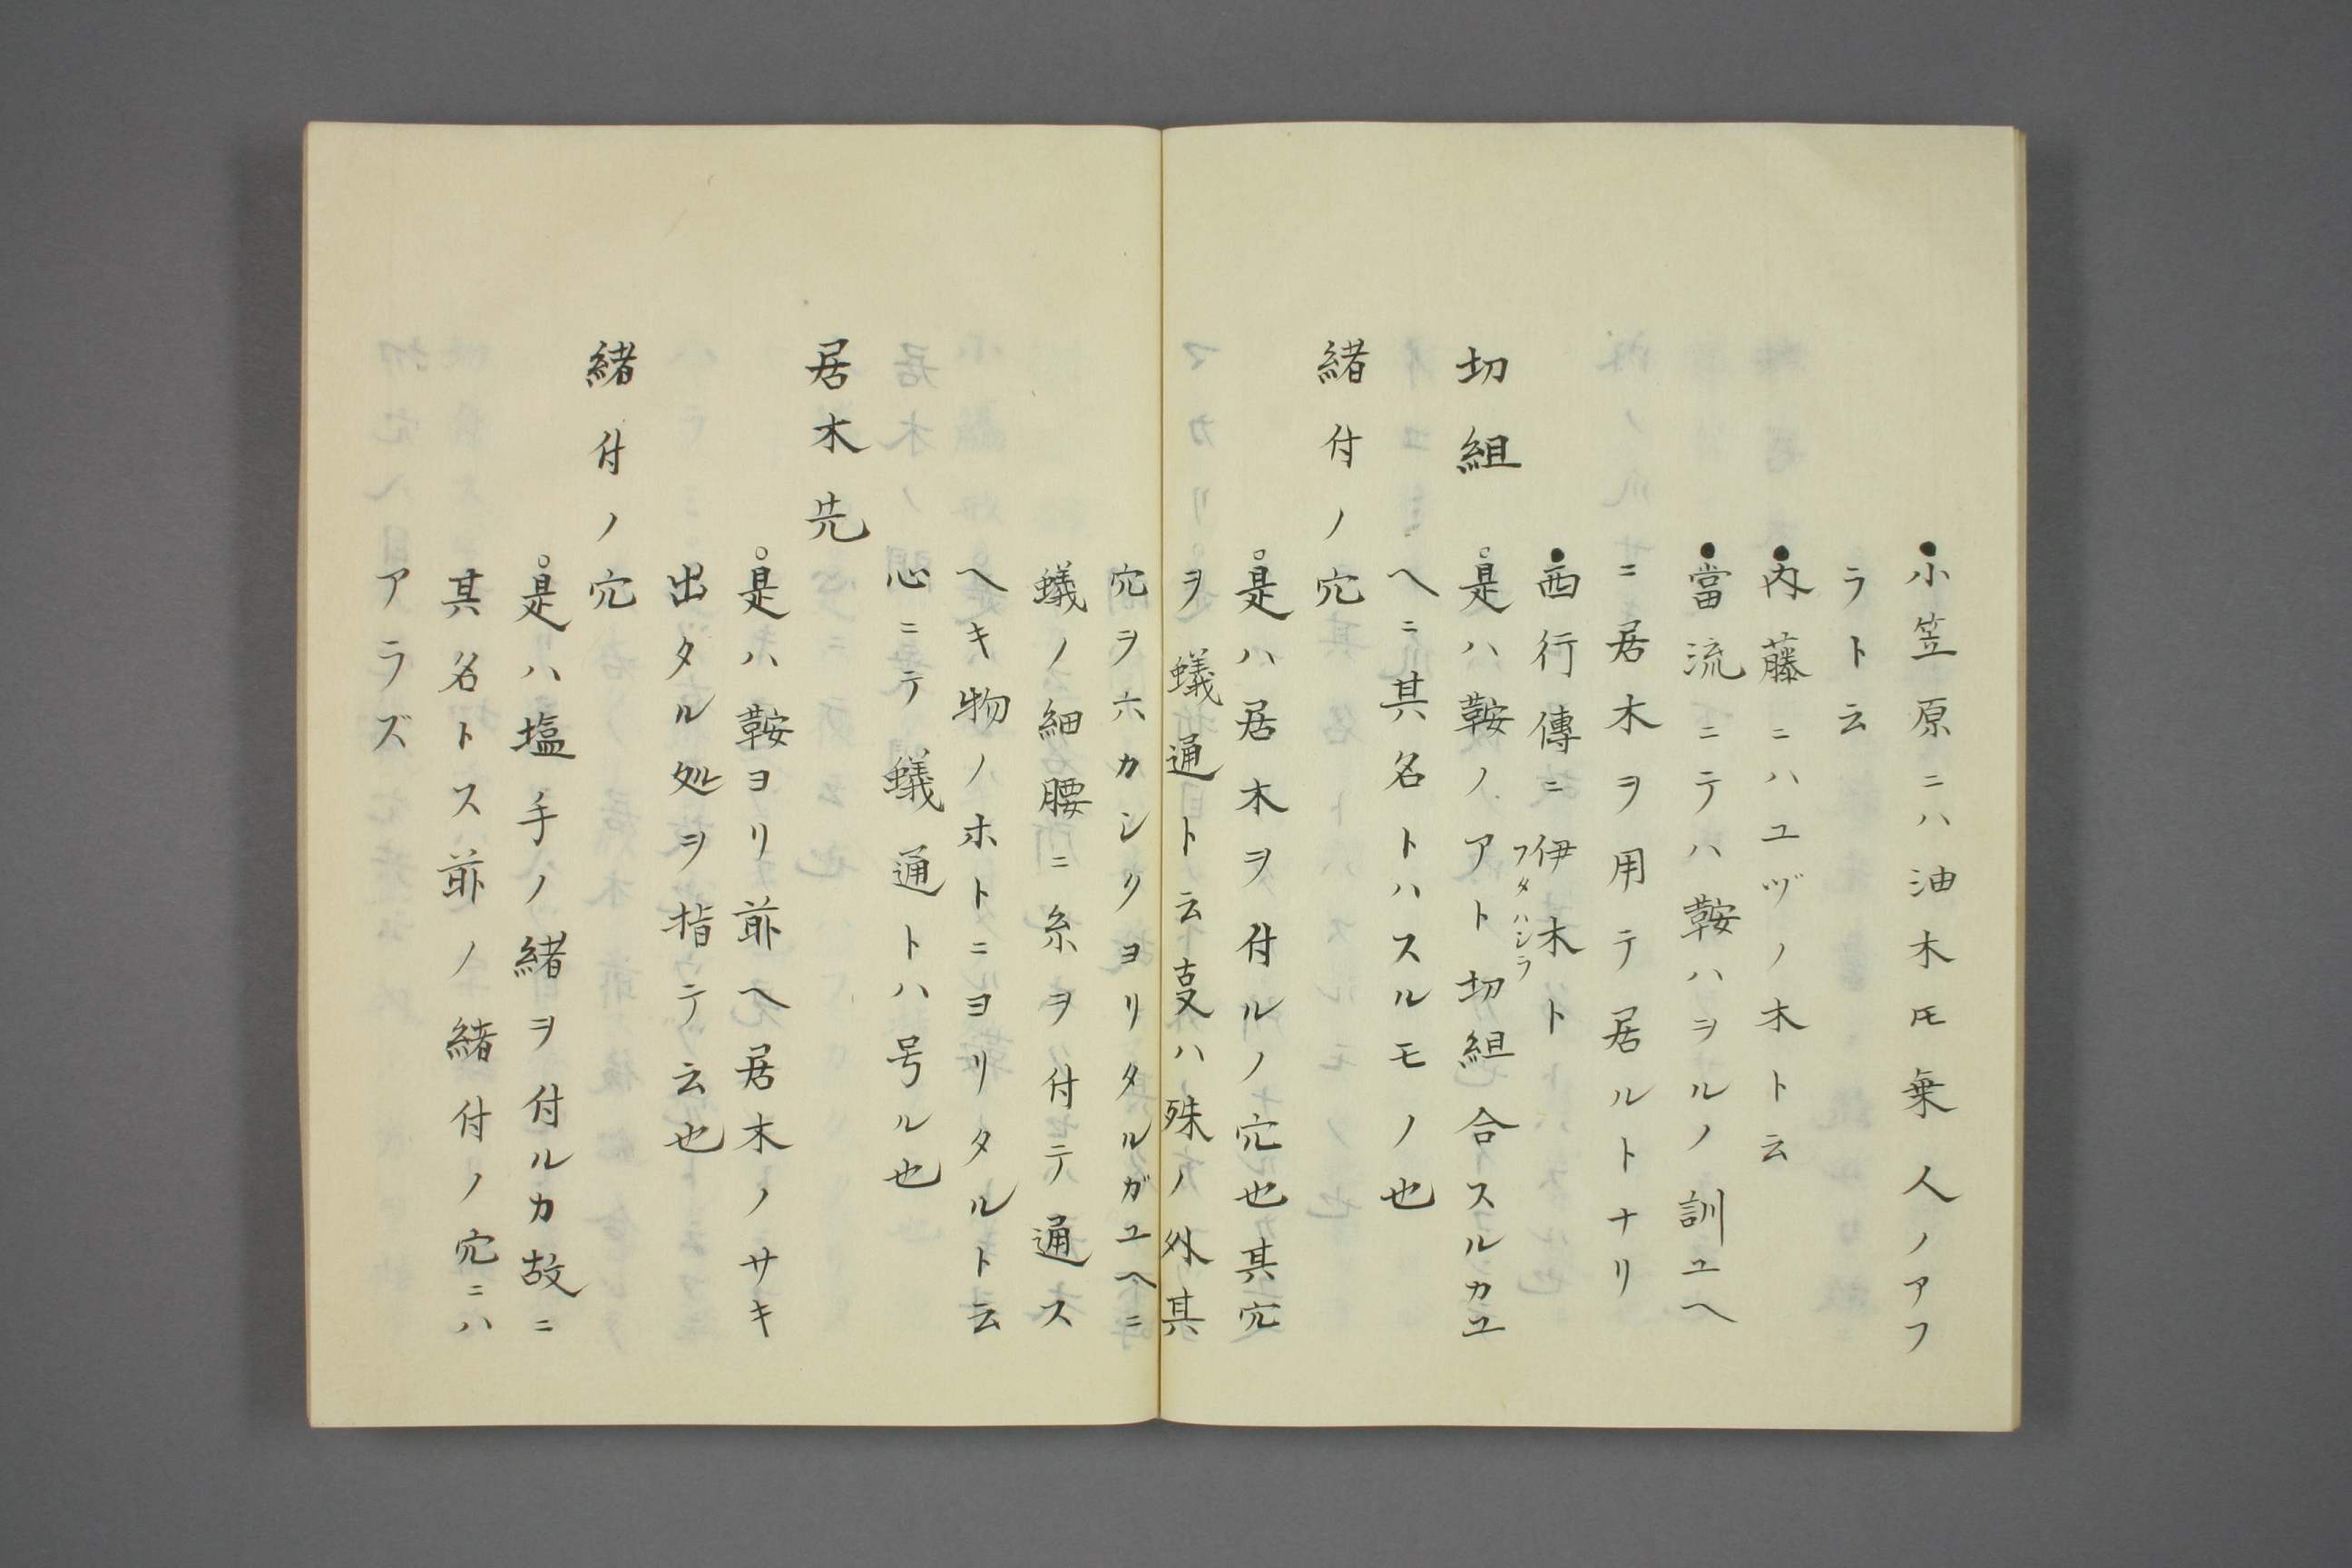 ●小笠原ニハ油木𪜈乗人ノアフ
ラト云
●内藤ニハユヅノ木ト云
●當流ニテハ鞍ハヲルノ訓ユヘ
ニ居木ヲ用テ居ルトナリ
●西行傳ニ伊木ト
フタハシラ
切組
○是ハ鞍ノアト切組合スルカユ
ヘニ其名トハスルモノ也
緒付ノ穴
○是ハ居木ヲ付ルノ穴也其穴
ヲ蟻通ト云叓ハ殊ノ外其
穴ヲホカシクヨリタルガユヘニ
蟻ノ細腰ニ糸ヲ付テ通ス
ヘキ物ノホトニヨリタルト云
心ニテ蟻通トハ号ル也
居木先
○是ハ鞍ヨリ前ヘ居木ノサキ
出タル処ヲ指テ云也
緒付ノ穴
○是ハ塩手ノ緒ヲ付ルカ故ニ
其名トス前ノ緒付ノ穴ニハ
アラズ